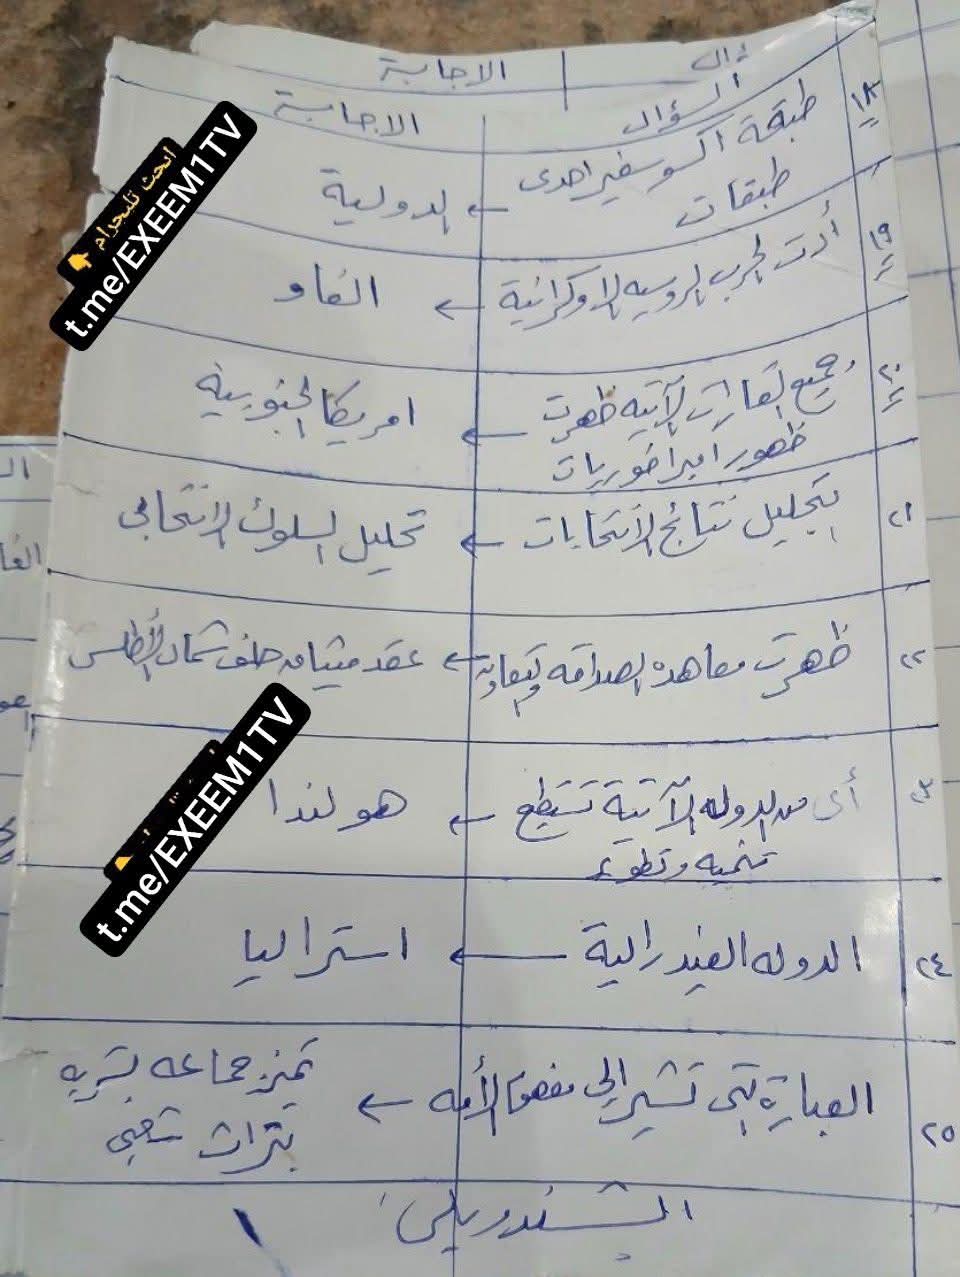 ؤال الاجابة
السؤال الاجابة
١٨ طبقة اكسوسفير احدى طبقات ← الدولية
١٩ أدت الحرب الروسيه الاوكرانية ← الفاو
٢٠ جميع القارات الآتيه ظهرت ← امريكا الجنوبية
ظهور امبراطوريات
٢١ بتحليل نتائج الانتخابات ← تحليل السلوك الانتخابى
٢٢ ظهرت معاهده الصداقه والتعاون ← عقد ميثاق حلف شمال الأطلسى
٢٣ أى من الدوله الآتية تستطيع ← هولندا
تنميه وتطوير
٢٤ الدوله الفيدرالية ← استراليا
٢٥ العبارة التى تشير الى مفهوم الأمه ← تميز جماعه بشريه
بتراث شعبى
ابحث تليجرام 👇
t.me/EXEEM1TV
t.me/EXEEM1TV